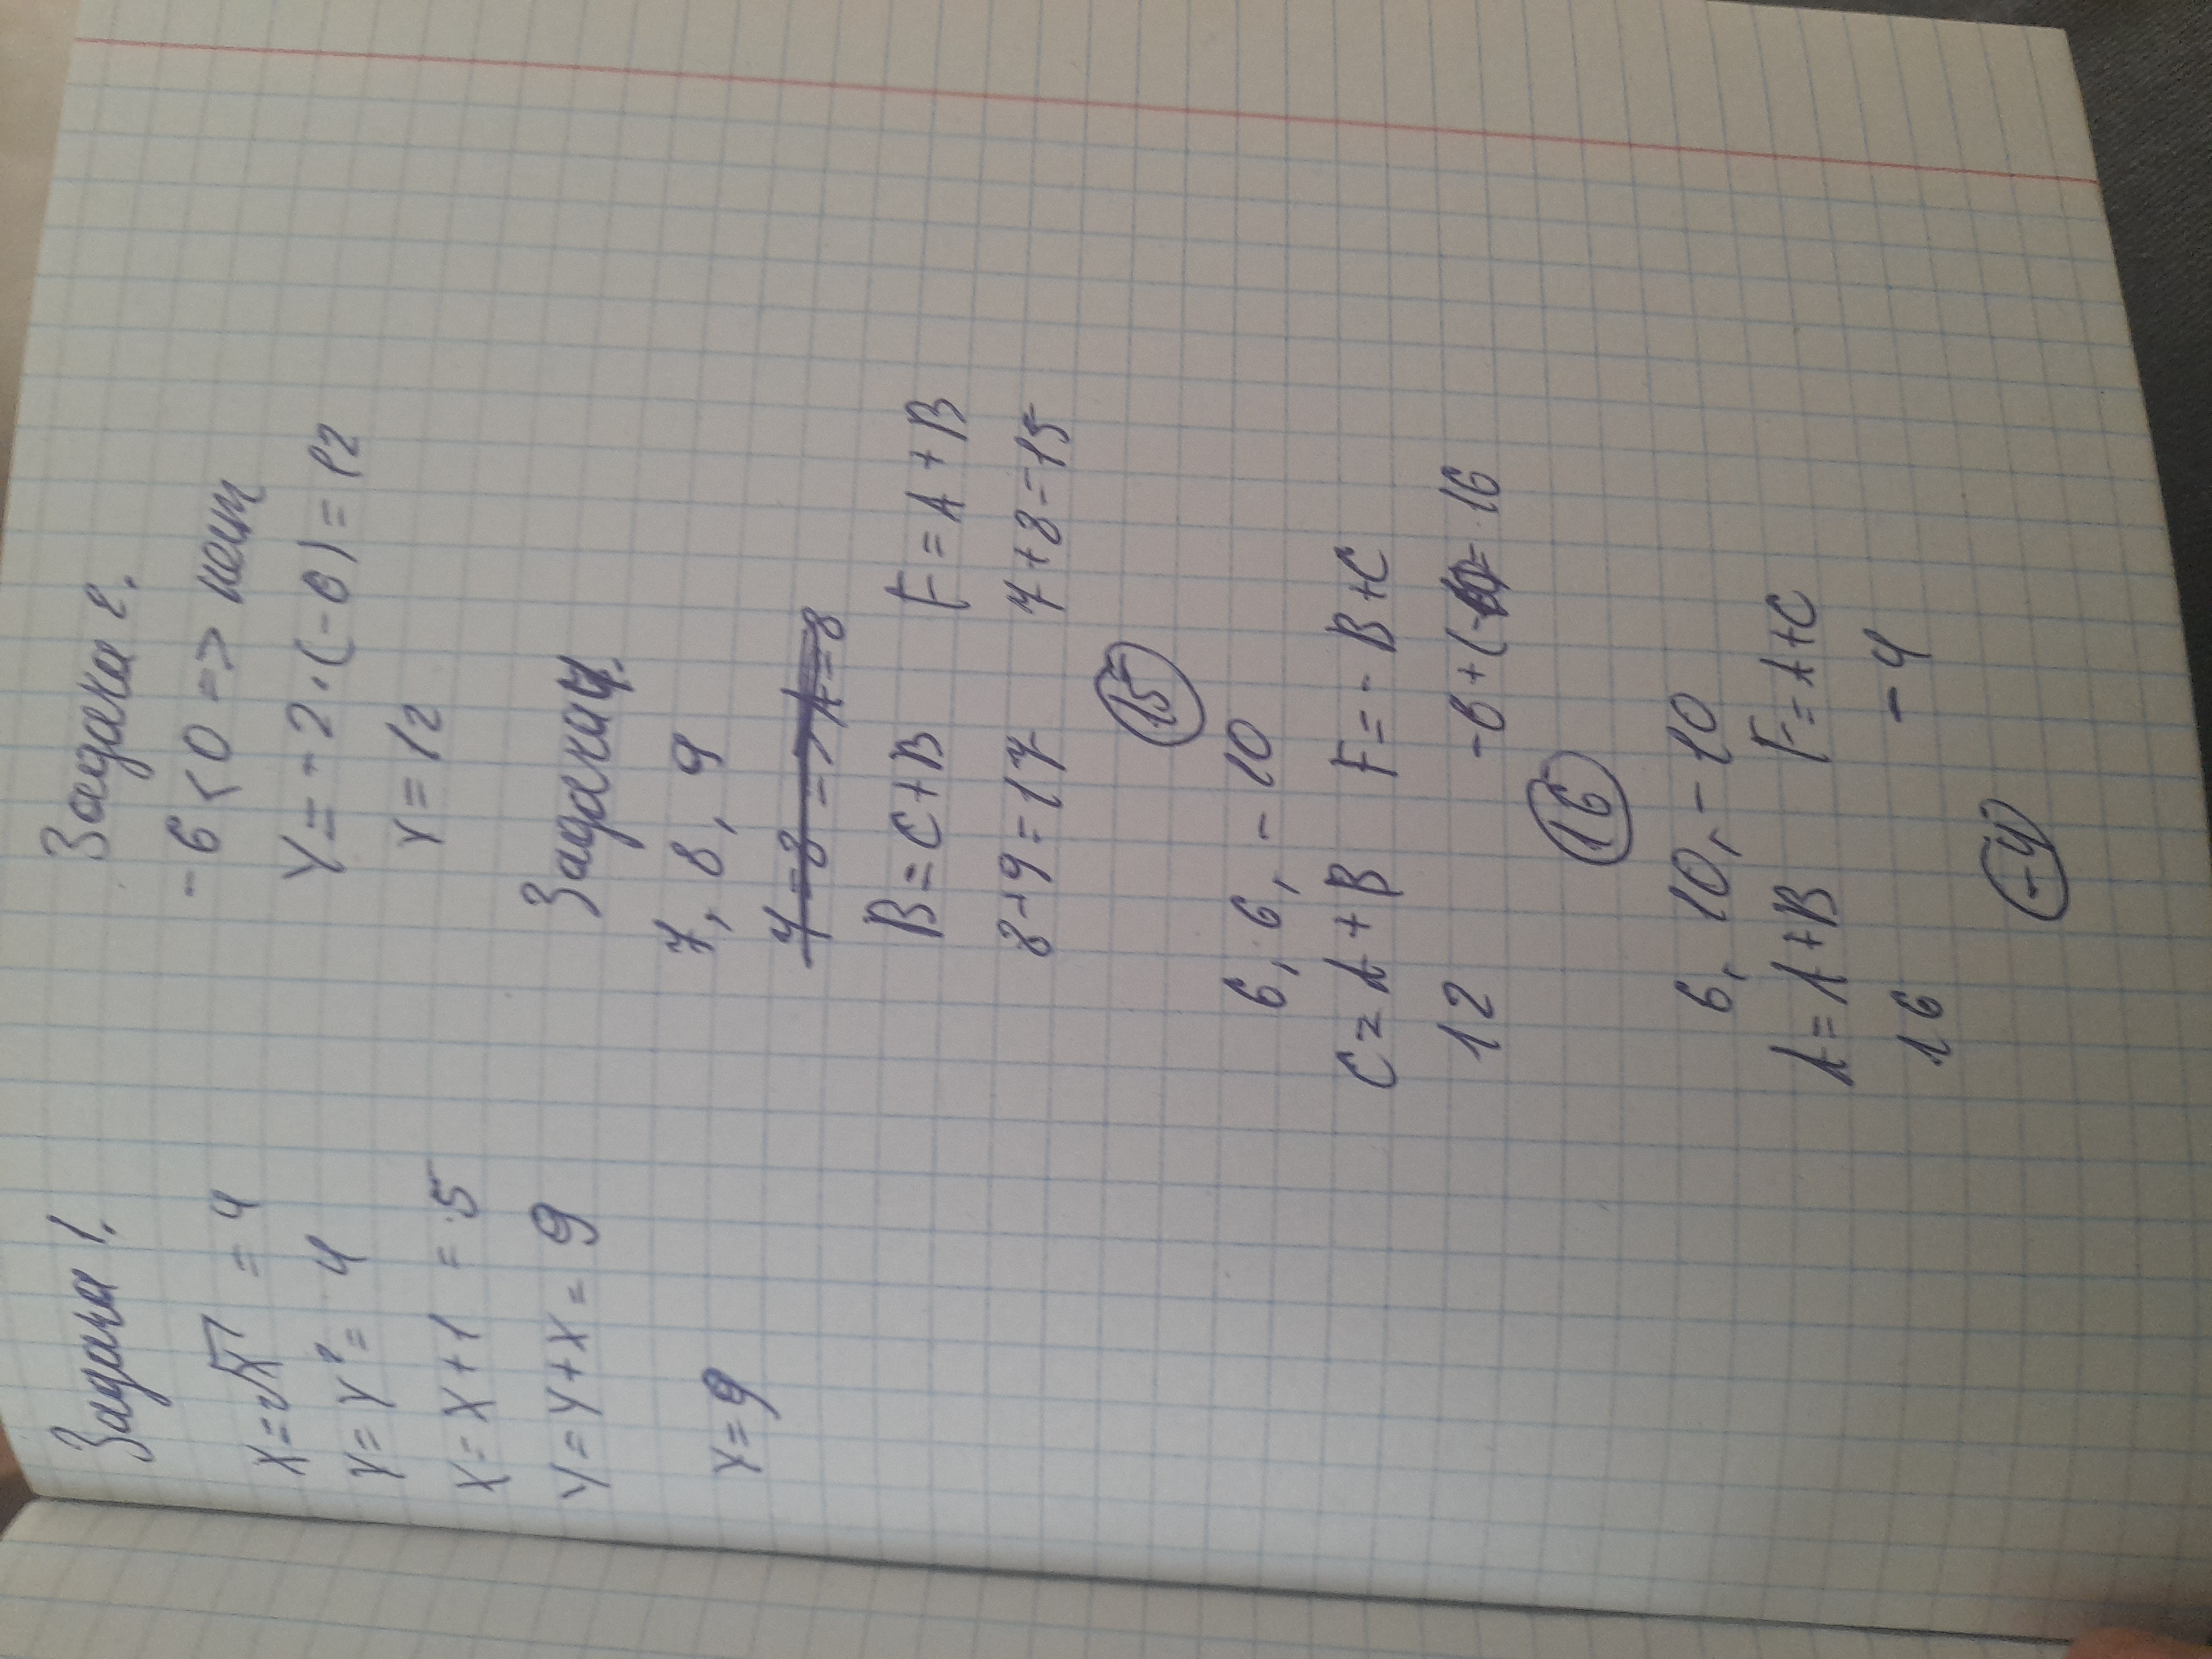 Задача 1.
X = √X = 4
Y = Y² = 4
X = X + 1 = 5
Y = Y + X = 9
Y = 9
Задача 2.
-6 < 0 => нет
Y = -2 · (-6) = 12
Y = 12
Задача 4.
7, 8, 9
B = C + B F = A + B
8 + 9 = 17 7 + 8 = 15
15
6, 6, -10
C = A + B F = - B + C
12 -6 + (- = 16
16
6, 10, -10
A = A + B F = A + C
16 -4
-4